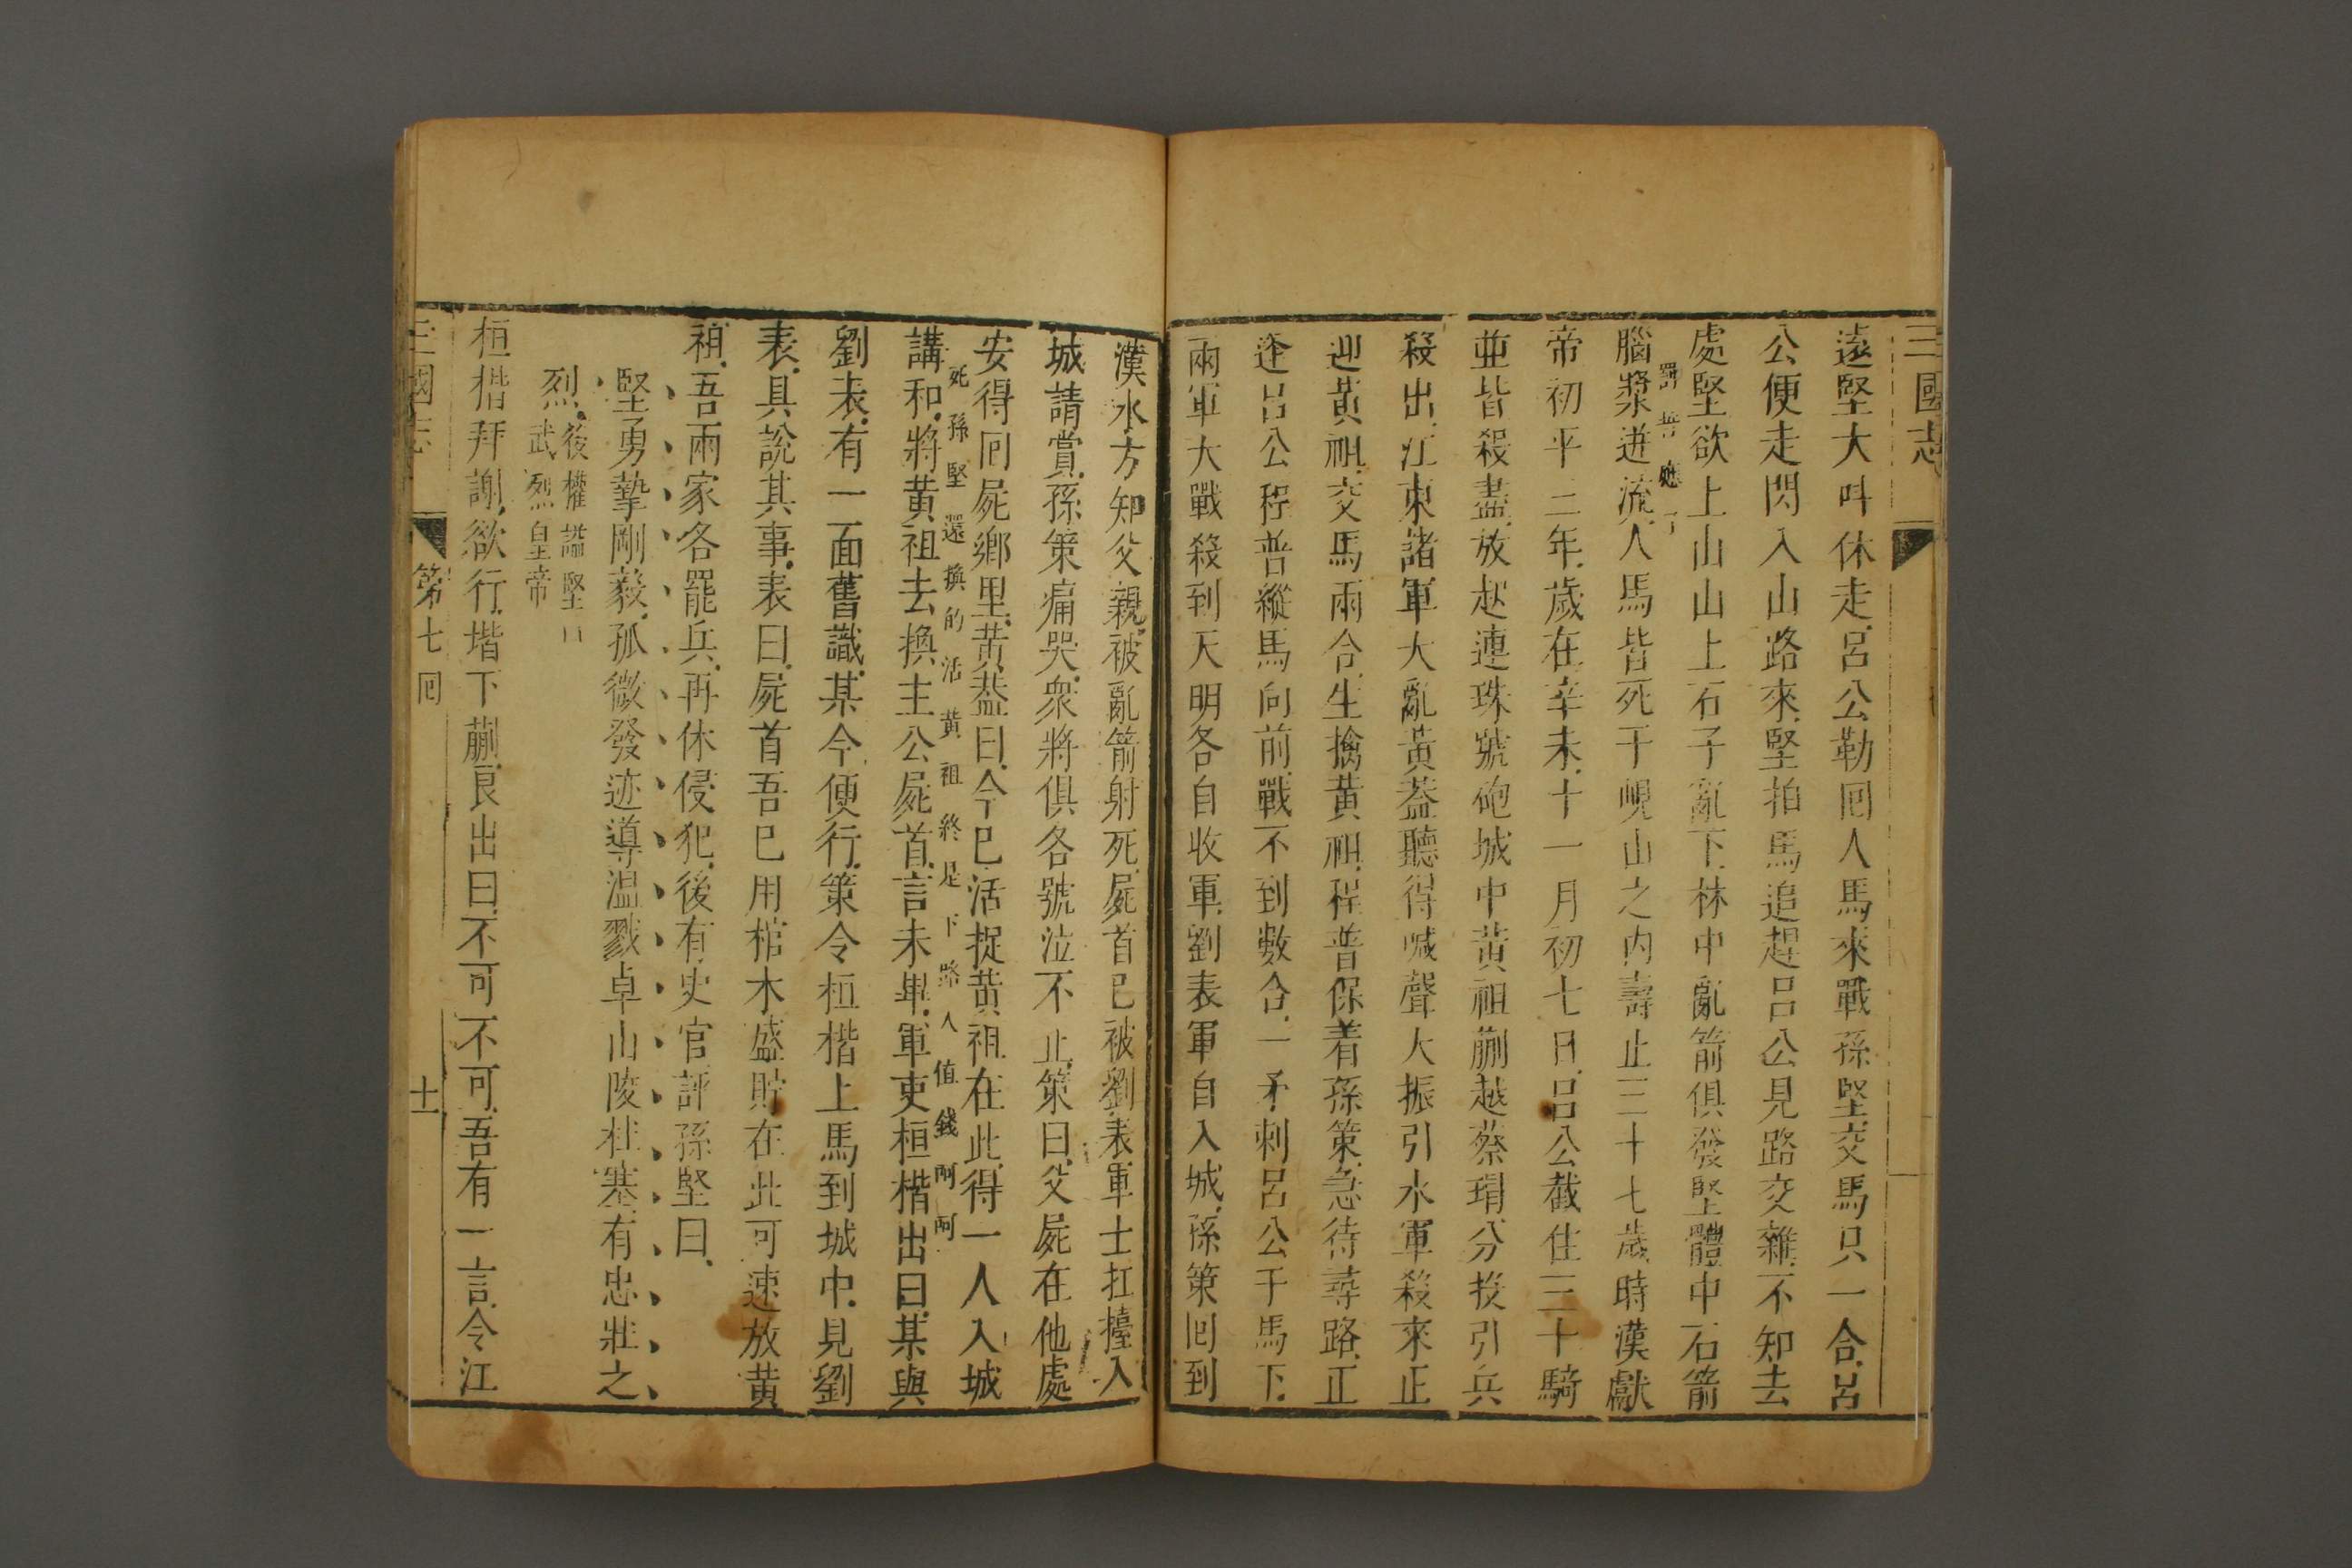 三國志
遠堅大呌休走呂公勒囘人馬來戰孫堅交馬只一合呂
公便走閃入山路來堅拍馬追趕呂公見路交雜不知去
處堅欲上山山上石子亂下林中亂箭俱發堅體中石箭
罰昔應了
腦漿迸流人馬皆死于峴山之内壽止三十七歲時漢獻
帝初平二年歲在辛未十一月初七日呂公截住三十騎
並皆殺盡放起連珠號砲城中黃祖蒯越蔡瑁分投引兵
殺出江東諸軍大亂黃蓋聽得喊聲大振引水軍殺來正
迎黃祖交馬兩合生擒黃祖程普保着孫策急待尋路正
逢呂公程普縱馬向前戰不到數合一矛刺呂公于馬下
兩軍大戰殺到天明各自收軍劉表軍自入城孫策囘到
漢水方知父親被亂箭射死屍首已被劉表軍士扛擡入
城請賞孫策痛哭衆將俱各號泣不止策曰父屍在他處
安得囘屍鄉里黃蓋曰今已活捉黃祖在此得一人入城
死孫堅還換的活黃祖終是下路人值錢呵呵
講和將黃祖去換主公屍首言未畢軍吏桓楷出曰某與
劉表有一面舊識某今便行策令桓楷上馬到城中見劉
表具說其事表曰屍首吾已用棺木盛貯在此可速放黃
祖吾兩家各罷兵再休侵犯後有史官評孫堅曰
堅勇摯剛毅孤微發迹導温戮卓山陵杜塞有忠壯之
烈後權諡堅曰
武烈皇帝
桓楷拜謝欲行堦下蒯良出曰不可不可吾有一言令江
三國志 第七囘 十一